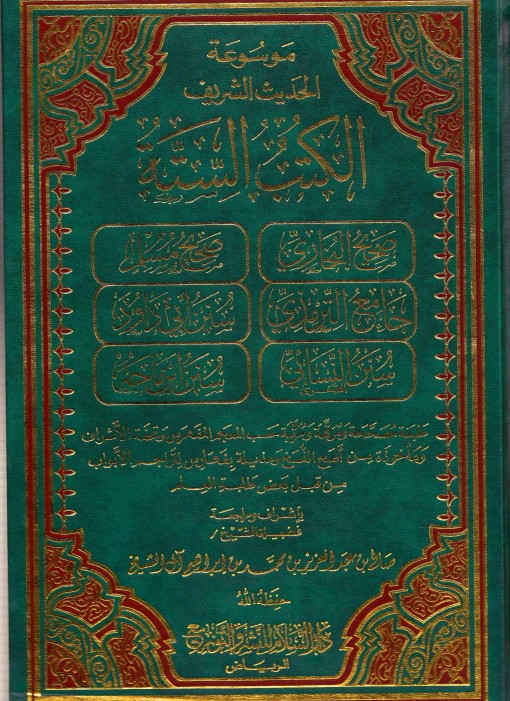 موسوعة
الحديث الشريف
الكتب الستة
صحيح البخاري
صحيح مسلم
جامع الترمذي
سنن أبي داود
سنن النسائي
سنن ابن ماجه
طبعة مصححة ومرقمة ومرتبة حسب المعجم المفهرس وتحفة الأشراف
ومأخوذة من أصح النسخ ومذيلة بفهارس لتراجم الأبواب
من قبل بعض طلبة العلم
بإشراف ومراجعة
فضيلة الشيخ /
صالح بن عبد العزيز بن محمد بن إبراهيم آل الشيخ
حفظه الله
دار السلام للنشر والتوزيع
الرياض